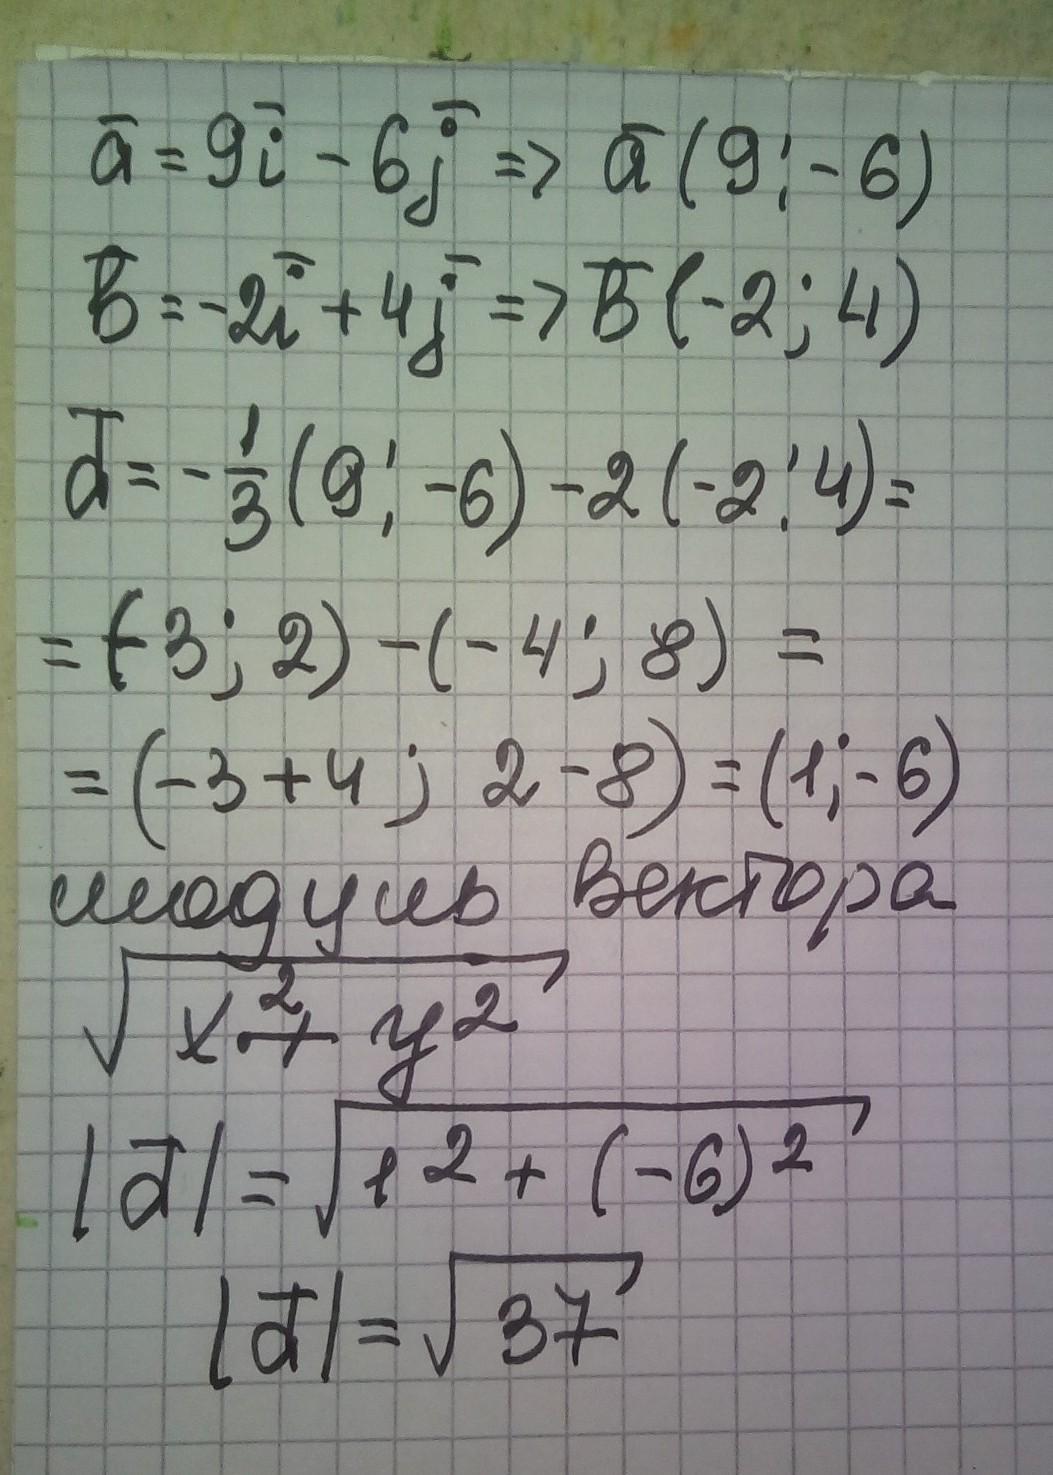 ā = 9ī - 6j̄ => ā (9; -6)
B̄ = -2ī + 4j̄ => B̄ (-2; 4)
d̄ = -1/3 (9; -6) - 2 (-2; 4) =
= (-3; 2) - (-4; 8) =
= (-3 + 4; 2 - 8) = (1; -6)
модуль вектора
√(x² + y²)
|d̄| = √(1² + (-6)²)
|d̄| = √37